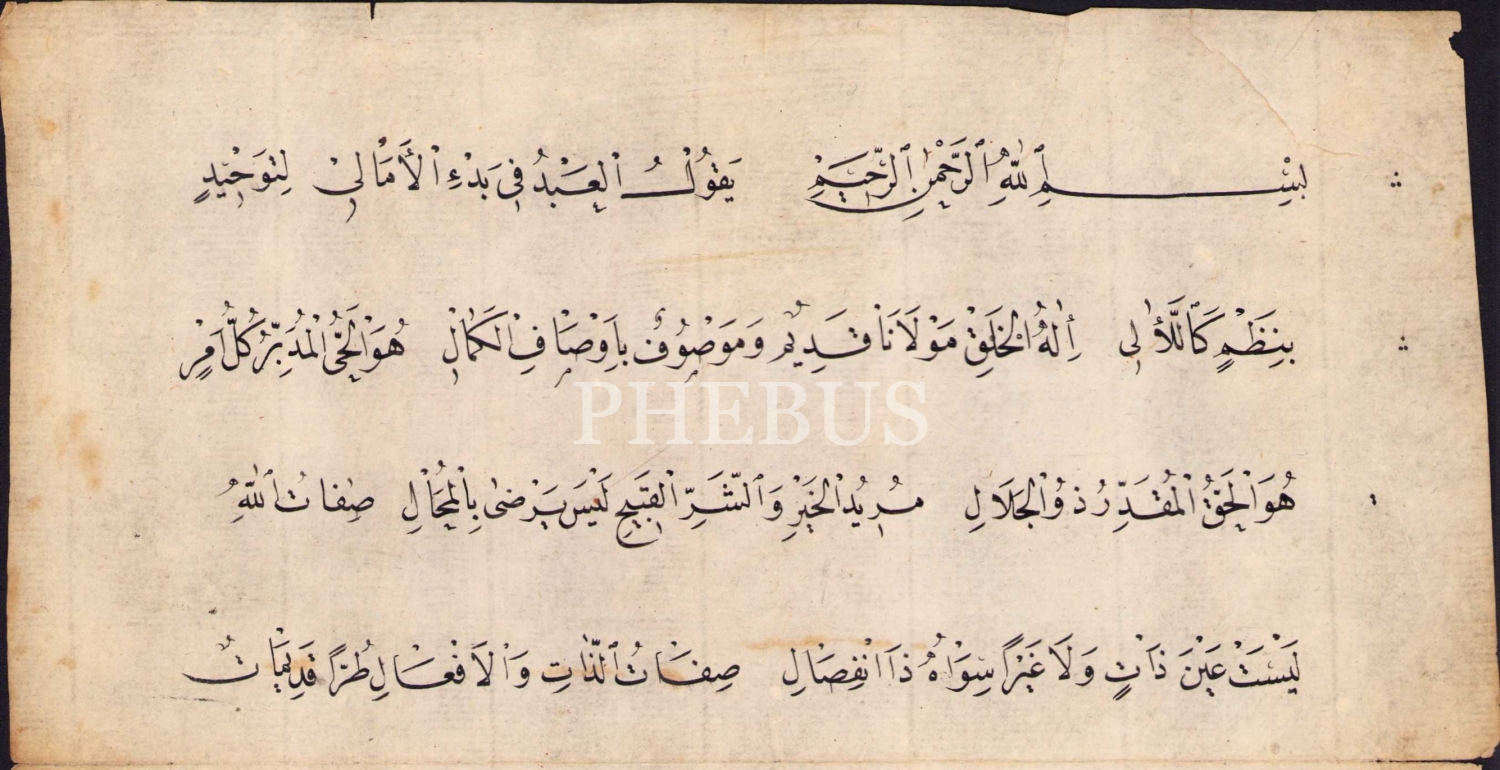 بِسْمِ اللّٰهِ الرَّحْمٰنِ الرَّحِيمِ يَقُولُ الْعَبْدُ فِي بَدْءِ الْأَمَالِي لِتَوْحِيدٍ
بِنَظْمٍ كَاللَّأٰلِي اِلٰهُ الْخَلْقِ مَوْلَانَا قَدِيمٌ وَمَوْصُوفٌ بِاَوْصَافِ الْكَمَالِ هُوَ الْحَيُّ الْمُدَبِّرُ كُلَّ اَمْرٍ
PHEBUS
هُوَ الْحَقُّ الْمُقَدِّرُ ذُو الْجَلَالِ مُرِيدُ الْخَيْرِ وَالشَّرِّ الْقَبِيحِ لَيْسَ يَرْضٰى بِالْمُحَالِ صِفَاتُ اللّٰهِ
لَيْسَتْ عَيْنَ ذَاتٍ وَلَا غَيْرًا سِوَاهُ ذَا انْفِصَالِ صِفَاتُ الذَّاتِ وَالْاَفْعَالِ طُرًّا قَدِيمَاتٌ